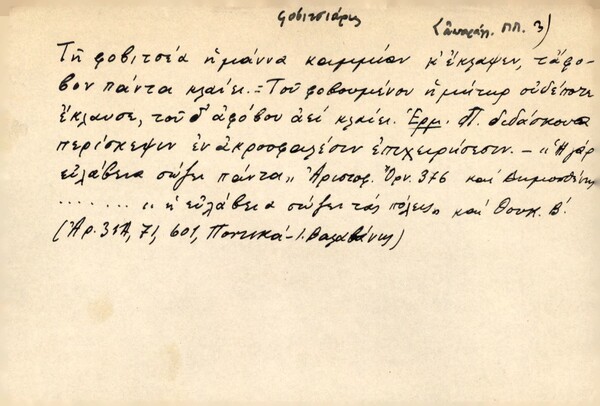 φοβιτσιάρης
(ἀπαράλ. ΠΠ. 3)
Τῆ φοβιτσέα ἡ μάννα καμμίαν κ' ἔκλαψεν, τ' ἄφο-
βον πάντα κλαίει. = Τοῦ φοβουμένου ἡ μήτηρ οὐδέποτε
ἔκλαυσε, τοῦ δ' ἀφόβου ἀεί κλαίει. Ἑρμ. Π. διδάσκουσα
περίσκεψιν ἐν ἀκροσφαλέσιν ἐπιχειρήσεσιν. – "Ἡ γάρ
εὐλάβεια σώζει πάντα" Ἀριστοφ. Ὄρν. 376 καί Δημοσθένης
....... "ἡ εὐλάβεια σώζει τάς πόλεις" καί Θουκ. Β'.
(Ἀρ. 311, 71, 601, Ποντικά - Ι. Βαλαβάνης)